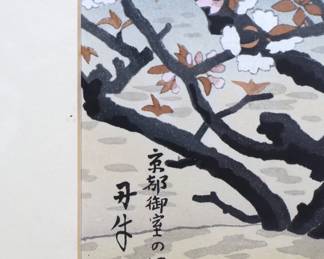 京都御室の
丹生